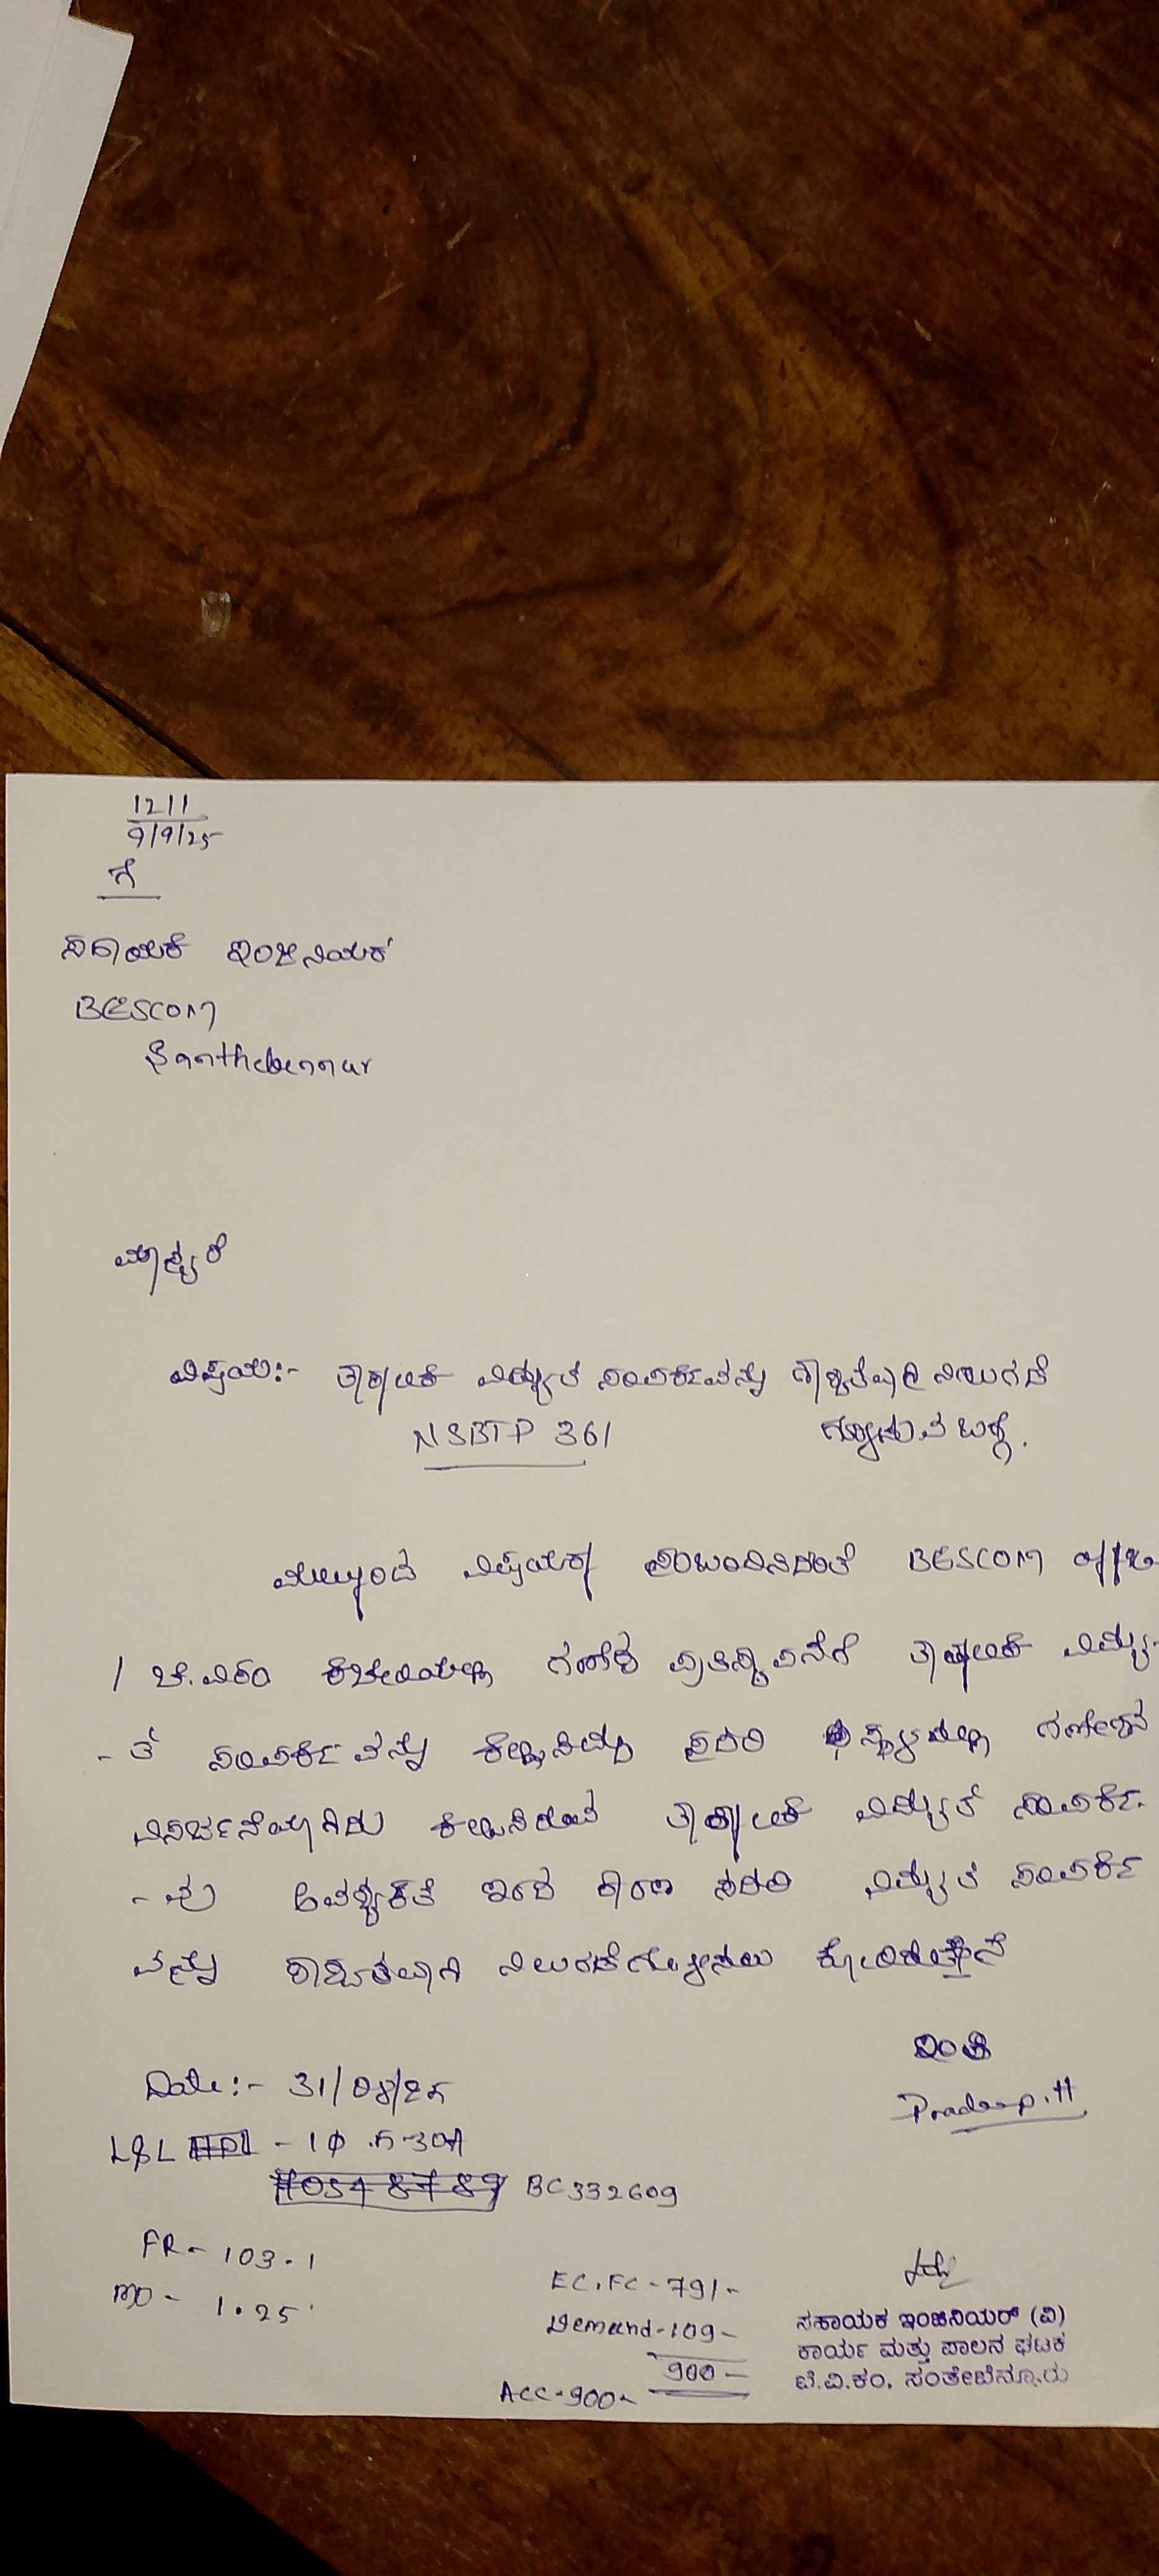 1211
9/9/25
ಗೆ
ಸಹಾಯಕ ಇಂಜಿನಿಯರ್
BESCOM
Santhebennur
ಮಾನ್ಯರೆ
ವಿಷಯ:- ತಾತ್ಕಾಲಿಕ ವಿದ್ಯುತ ಸಂಪರ್ಕವನ್ನು ಶಾಶ್ವತವಾಗಿ ನಿಲುಗಡೆ
NSBTP 361 ಗೊಳಿಸುವ ಬಗ್ಗೆ.
ಮೇಲ್ಕಂಡ ವಿಷಯಕ್ಕೆ ಸಂಬಂದಿಸಿದಂತೆ BESCOM
ಕಚೇರಿಯಲ್ಲಿ ಗಣೇಶ ಪ್ರತಿಷ್ಠಾಪನೆಗೆ ತಾತ್ಕಾಲಿಕ ವಿದ್ಯು-
-ತ ಸಂಪರ್ಕವನ್ನು ಕಲ್ಪಿಸಿದ್ದು ಸದರಿ ಗಣೇಶನ
ವಿಸರ್ಜನೆಯಾಗಿದ್ದು ಕಲ್ಪಿಸಿರುವ ತಾತ್ಕಾಲಿಕ ವಿದ್ಯುತ ಸಂಪರ್ಕ-
ಅವಶ್ಯಕತೆ ಇರದ ಕಾರಣ ಸದರಿ ವಿದ್ಯುತ ಸಂಪರ್ಕ
ವನ್ನು ಶಾಶ್ವತವಾಗಿ ನಿಲುಗಡೆಗೊಳಿಸಲು ಕೋರಿರುತ್ತೇನೆ
ಇಂತಿ
Pradeep.H
Date:- 31/08/25
L&L - 1Φ 5-30A
BC332609
FR- 103.1
MD- 1.25
EC.FC-791-
Demand-109-
900-
ACC-900-
ಸಹಾಯಕ ಇಂಜಿನಿಯರ್ (ವಿ)
ಕಾರ್ಯ ಮತ್ತು ಪಾಲನ ಘಟಕ
ಬೆ.ವಿ.ಕಂ, ಸಂತೇಬೆನ್ನೂರು